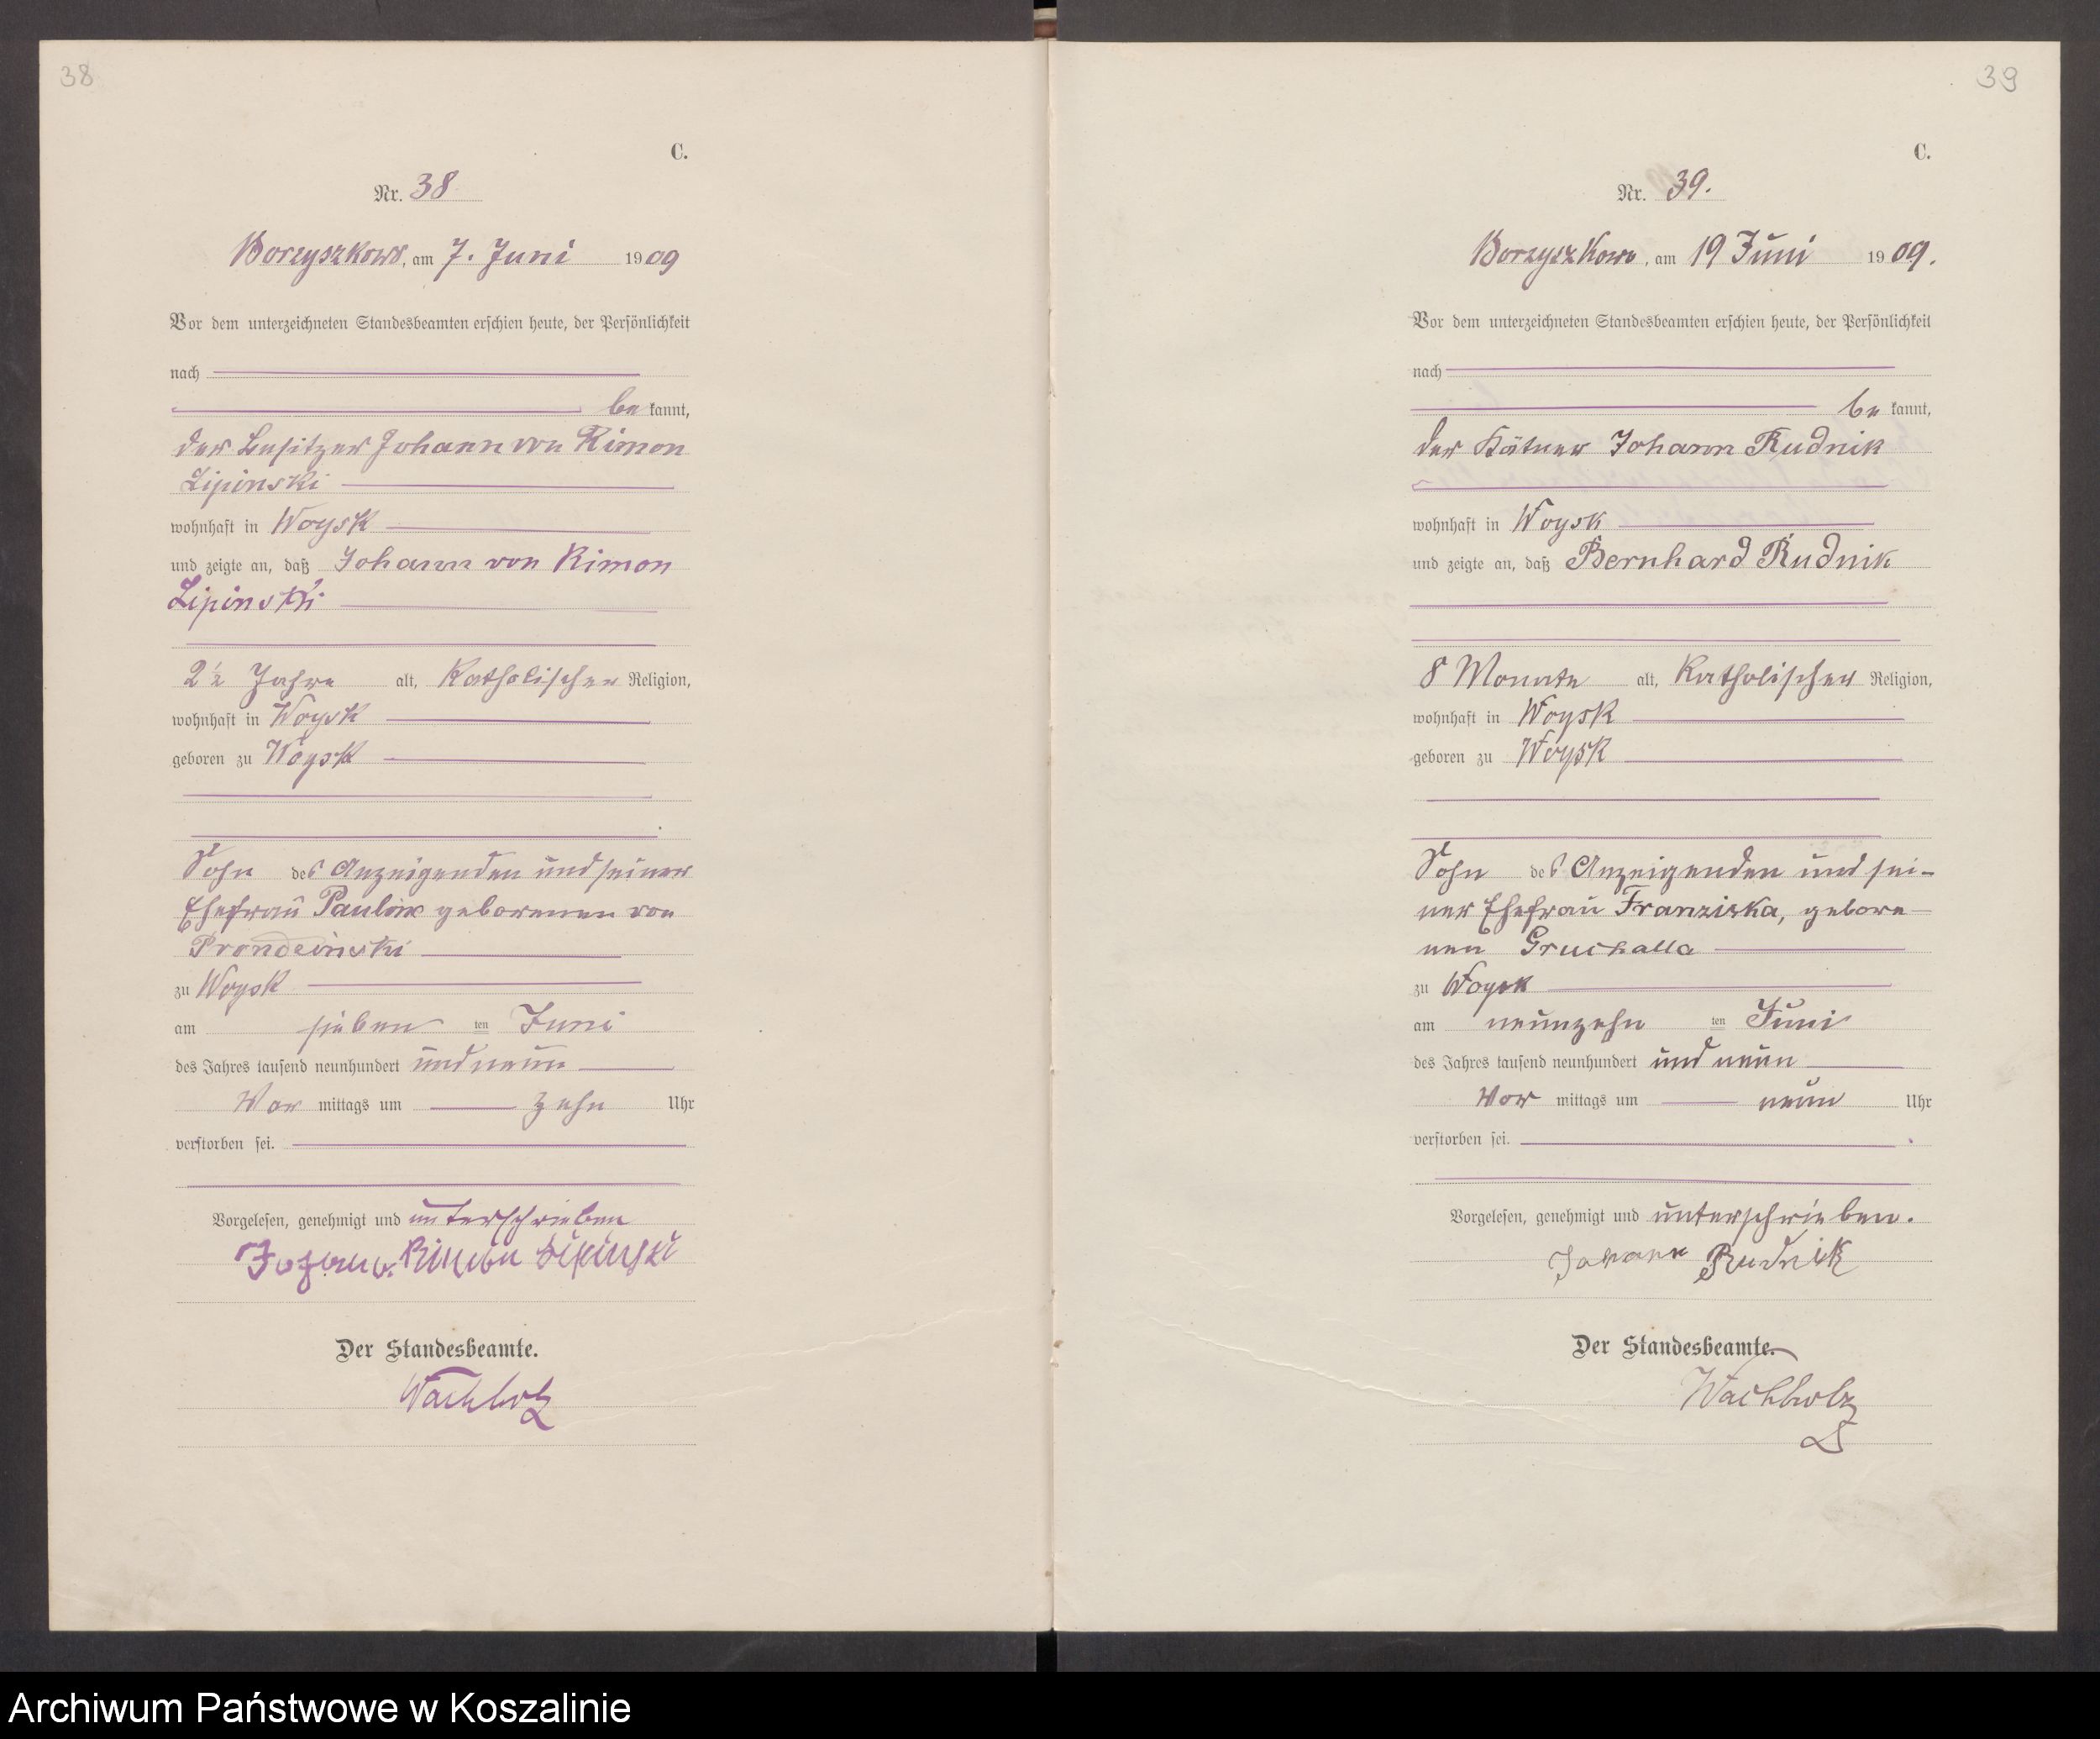 38
C.
Nr. 38
Borzyszkowo, am 7. Juni 1909
Vor dem unterzeichneten Standesbeamten erschien heute, der Persönlichkeit
nach
be kannt,
der Besitzer Johann von Rimon
Lipinski
wohnhaft in Woysk
und zeigte an, daß Johann von Rimon
Lipinski
2½ Jahre alt, Katholischer Religion,
wohnhaft in Woysk
geboren zu Woysk
Sohn des Anzeigenden und seiner
Ehefrau Pauline geborenen von
Prondzinski
zu Woysk
am sieben ten Juni
des Jahres tausend neunhundert und neun
Vor mittags um zehn Uhr
verstorben sei.
Vorgelesen, genehmigt und unterschrieben
Johann v. Rimon Lipinski
Der Standesbeamte.
Wachholz
39
C.
Nr. 39.
Borzyszkowo, am 19 Juni 1909.
Vor dem unterzeichneten Standesbeamten erschien heute, der Persönlichkeit
nach
be kannt,
der Kätner Johann Rudnik
wohnhaft in Woysk
und zeigte an, daß Bernhard Rudnik
8 Monate alt, Katholischer Religion,
wohnhaft in Woysk
geboren zu Woysk
Sohn des Anzeigenden und sei-
ner Ehefrau Franziska, gebore-
nen Gruchalla
zu Woysk
am neunzehn ten Juni
des Jahres tausend neunhundert und neun
Vor mittags um neun Uhr
verstorben sei.
Vorgelesen, genehmigt und unterschrieben.
Johann Rudnik
Der Standesbeamte.
Wachholz
Archiwum Państwowe w Koszalinie